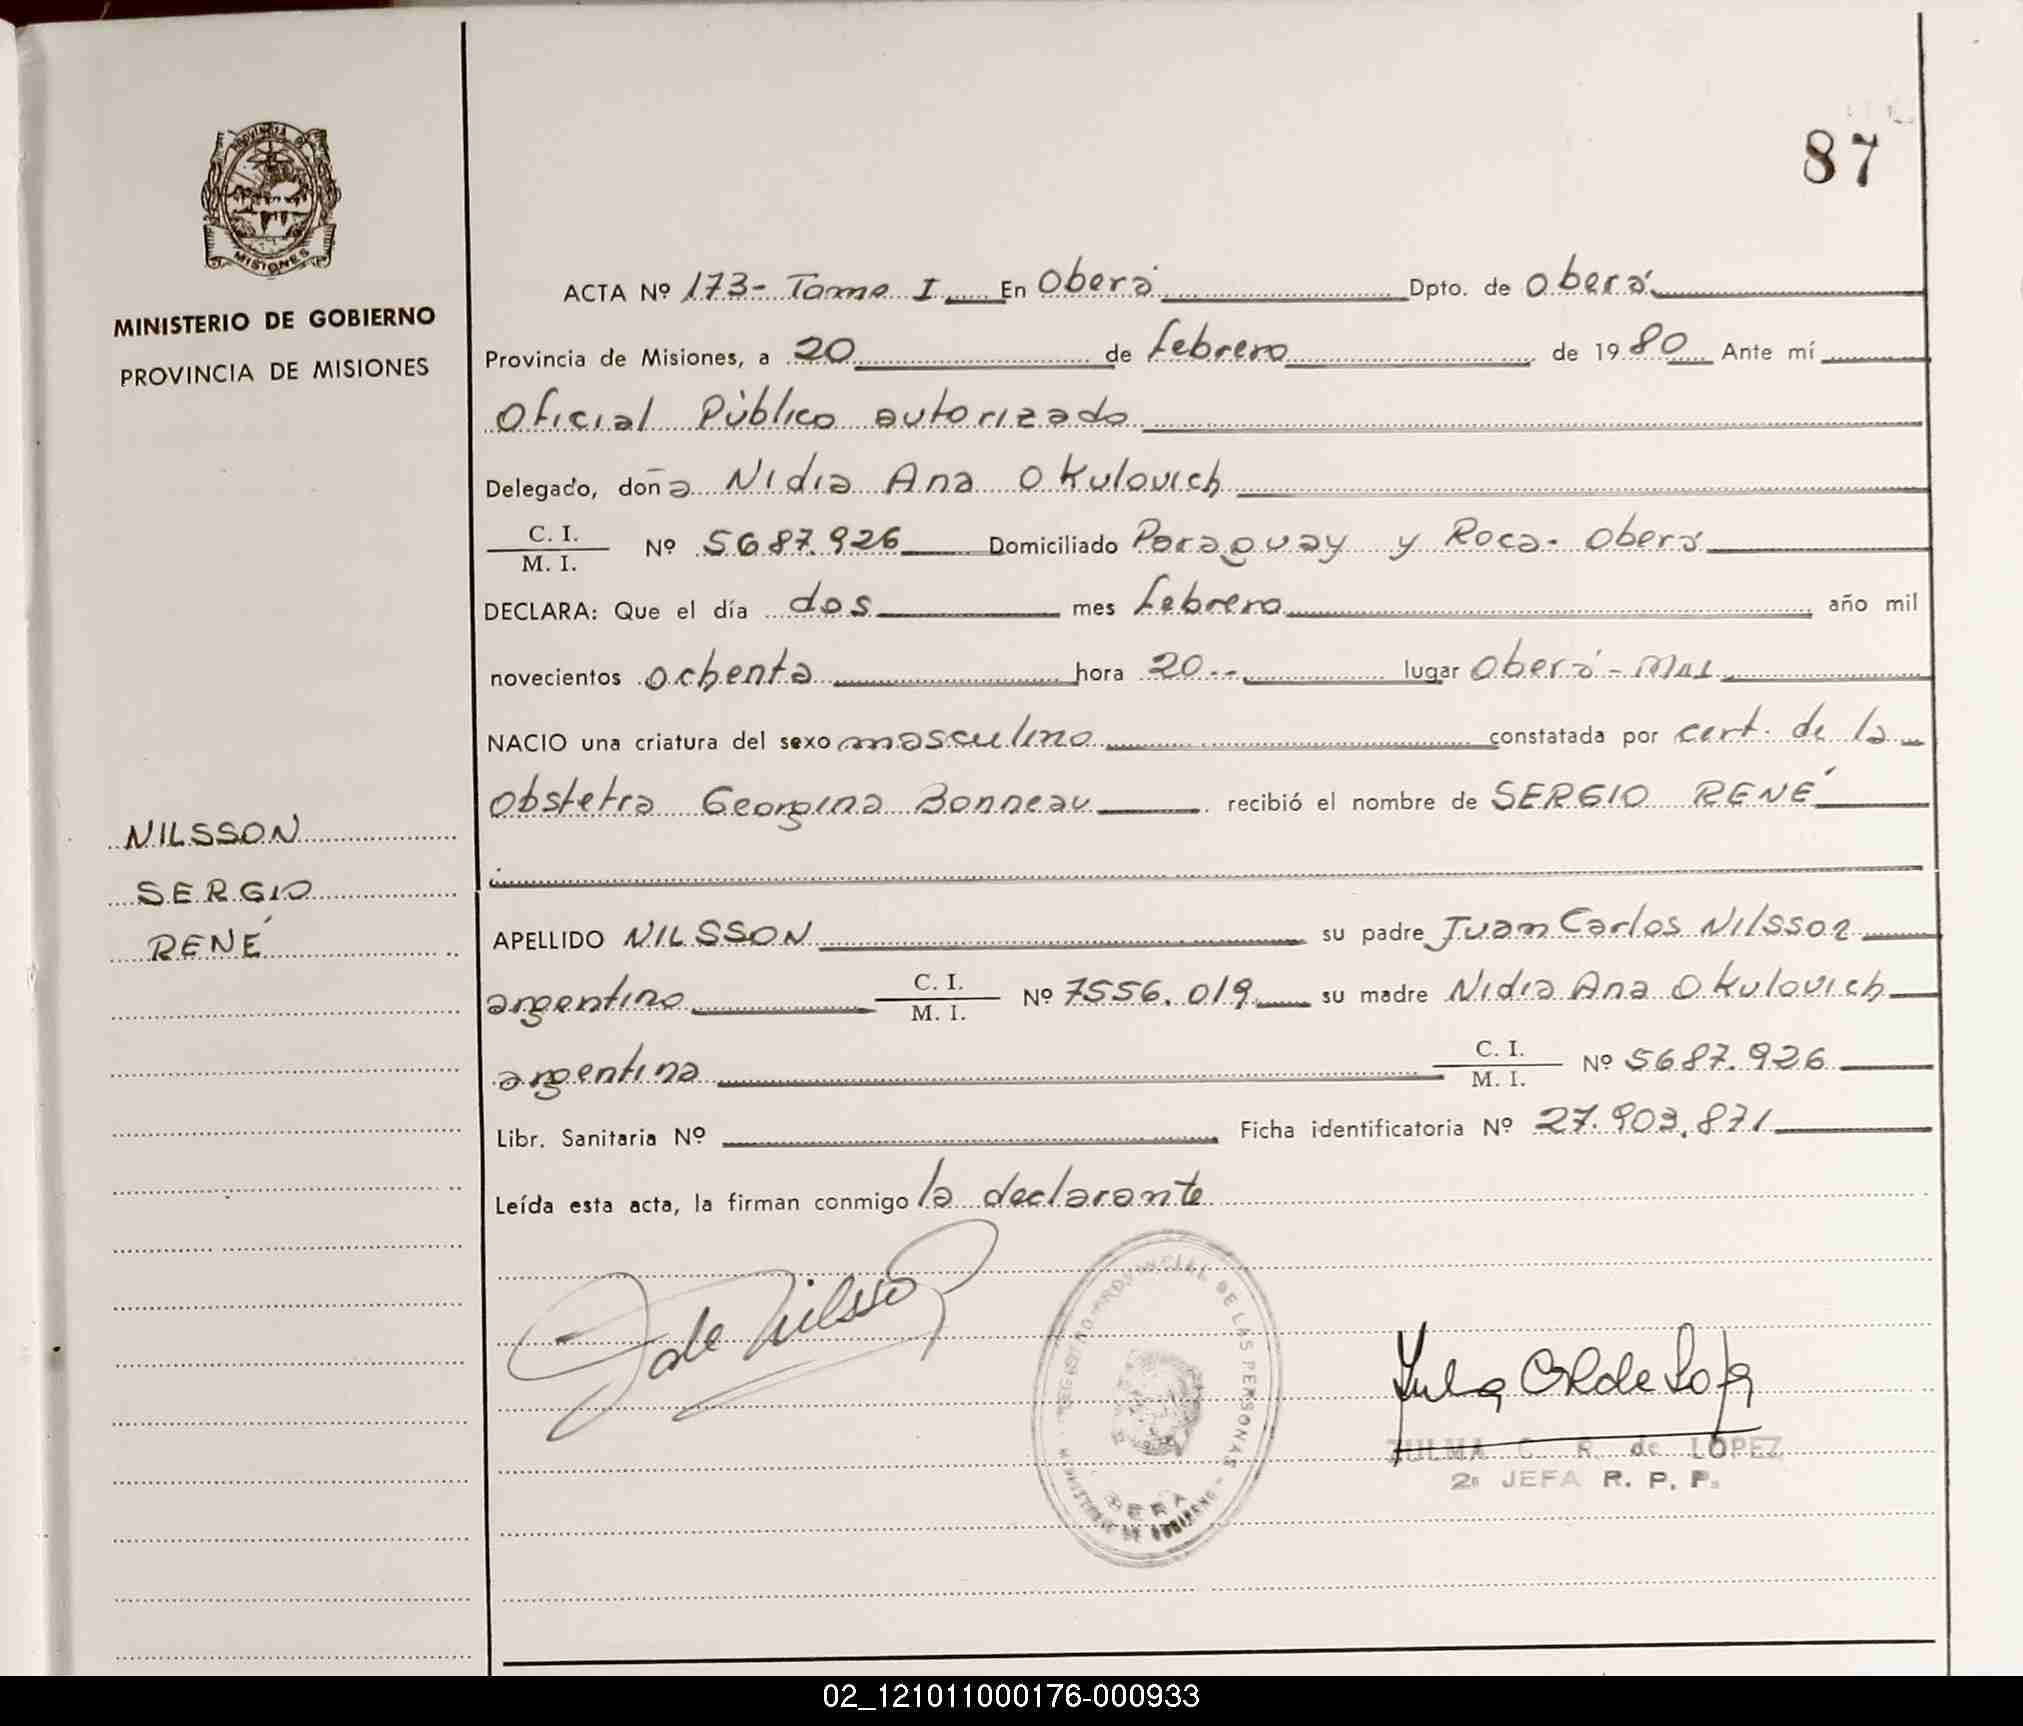 87
PROVINCIA DE
MISIONES
MINISTERIO DE GOBIERNO
PROVINCIA DE MISIONES
NILSSON
SERGIO
RENÉ
ACTA Nº 173- Tomo I En Oberá Dpto. de Oberá
Provincia de Misiones, a 20 de febrero de 1980 Ante mí
Oficial Público autorizado
Delegado, doña Nidia Ana Okulovich
C. I.
M. I. Nº 5687.926 Domiciliado Paraguay y Roca- Oberá
DECLARA: Que el día dos mes febrero año mil
novecientos ochenta hora 20-- lugar Oberá - Mns
NACIO una criatura del sexo masculino constatada por cert. de la
Obstetra Georgina Bonneau recibió el nombre de SERGIO RENÉ
APELLIDO NILSSON su padre Juan Carlos Nilsson
argentino C. I. M. I. Nº 7556.019 su madre Nidia Ana Okulovich
argentina C. I. M. I. Nº 5687.926
Libr. Sanitaria Nº Ficha identificatoria Nº 27.903.871
Leída esta acta, la firman conmigo la declarante
de Nilsson
REGISTRO PROVINCIAL DE LAS PERSONAS - MINISTERIO DE GOBIERNO -
OBERA
ZULMA C. R. de LOPEZ
2a JEFA R. P. P.
02_121011000176-000933